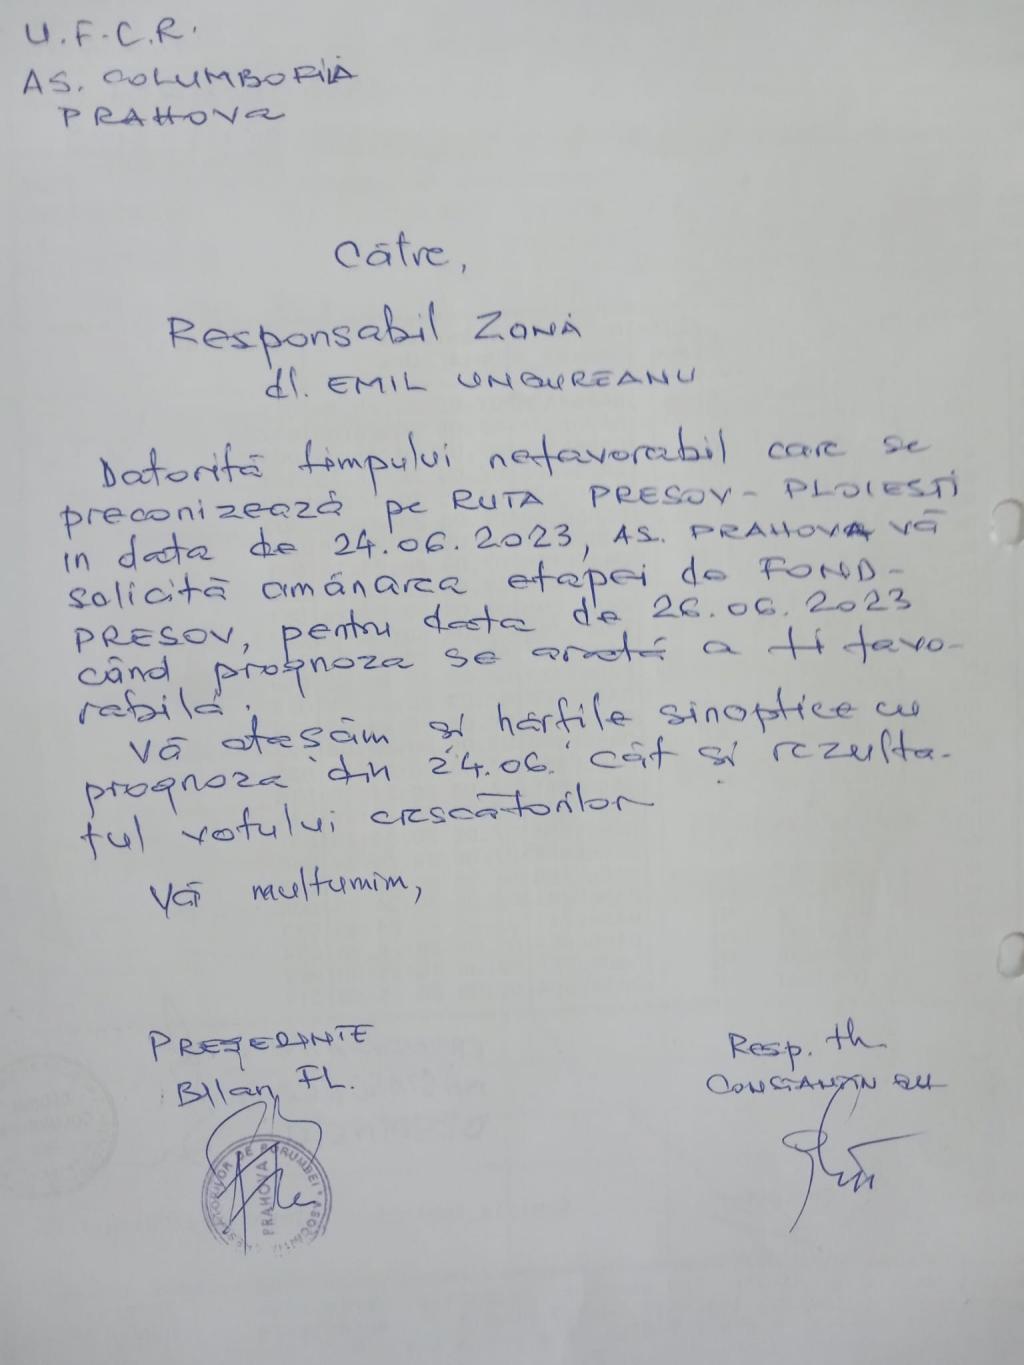 U.F.C.R.
AS. COLUMBOFILĂ
PRAHOVA
Către,
Responsabil ZONĂ
dl. EMIL UNGUREANU
Datorită timpului nefavorabil care se
preconizează pe RUTA PRESOV - PLOIESTI
in data de 24.06.2023, AS. PRAHOVA vă
solicită amânarea etapei de FOND-
PRESOV, pentru data de 26.06.2023
când prognoza se arată a fi favo-
rabilă.
Vă atașăm și hărțile sinoptice cu
prognoza din 24.06. cât și rezulta-
tul votului crescătorilor
Vă multumim,
PREȘEDINTE
Bîlan FL.
Resp. th.
CONSTANTIN
PRAHOVA